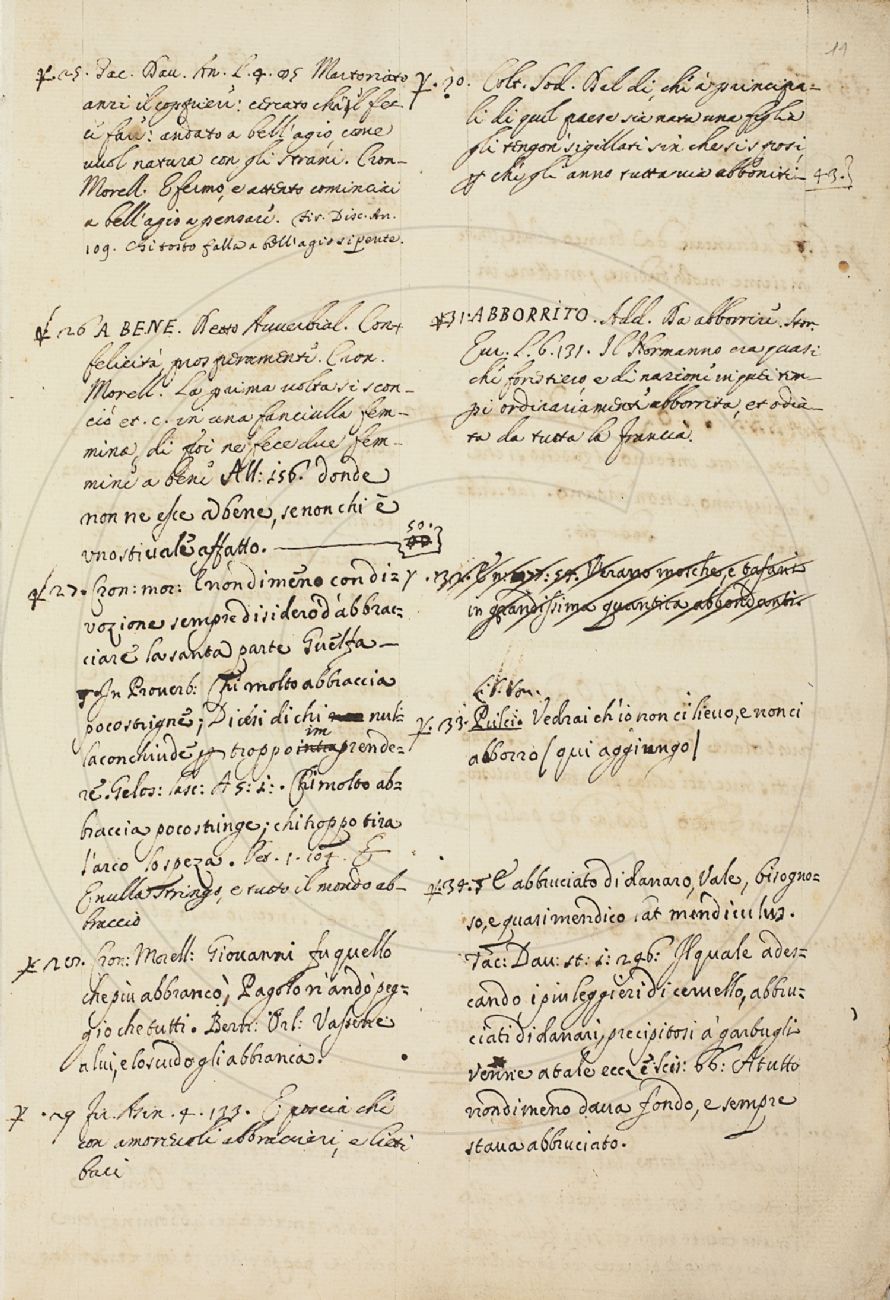 11
25. Tac. Dav. An. L. 4. 95 Martoriato
anzi il
a bell'agio, come
vuol natura con gli strani. Cron.
Morell. E fermo, e attento cominciai
a bell'agio a pensare. fir. Disc. An.
109. Chi tosto falla a bell'agio si pente.
26 A BENE. Detto Avverbial. Con
felicità, prosperamente. Cron.
Morell. La prima volta si scon-
ciò et. c. in una fanciulla fem-
mina, di poi ne fece due fem-
mine a bene All: 156. donde
non ne esce a bene, se non chi è
uno stivale affatto. 50.
27. Cron: mor: E nondimeno con di=
vozione sempre disiderò d'abbrac=
ciare la santa parte Guelfa
In Proverb: Chi molto abbraccia
poco strigne; Dicesi di chi nul=
la conchiude p troppo im prende=
re. Gelos: Lasc: A 5: s: . Chi molto ab=
braccia poco stringe; chi troppo tira
l'arco lo speza. Pet. 1. 104. E
E nulla stringo, e tutto il mondo ab-
braccio
28. Cron: Morell: Giovanni fu quello
che più abbrancò, Pagolo n'andò peg=
gio che tutti. Bern: Orl: Vassene
a lui, e lo scudo gli abbranca.
29 Fir. Asin. 4. 133. E porcia che
con amorevoli abbracciari, e lieti
baci
30. Colt. Sod. Dal dì, chi a principa-
li di quel paese sia nata una figlia
gli tengon sigillati sin che si sposi,
p che gli anno tuttavia abboniti. 43.
31. ABBORRITO. Add. Da abborrire. Stor.
Eur. L. 6. 131. Il Normanno era quasi
che foristiero, e di nazione in que' tem-
pi ordinariamente abborrita, et odia-
ta da tutta la francia.
32. Verano mosche, e tafani
in grandissima quantità abbondanti.
33. Pulci. Vedrai ch'io non ci lievo, e non ci
abborro / qui aggiungo /
34. E abbruciato di danaro, Vale, bisogno=
so, e quasi mendico lat mendiculus.
Tac: Dav: st: 1: 246: Il quale ades=
cando i più leggieri di cervello, abbru=
ciati di danari, precipitosi a' garbugli
venne a tale ecc. e Scis: 66: A tutto
nondimeno dava fondo, e sempre
stava abbruciato.